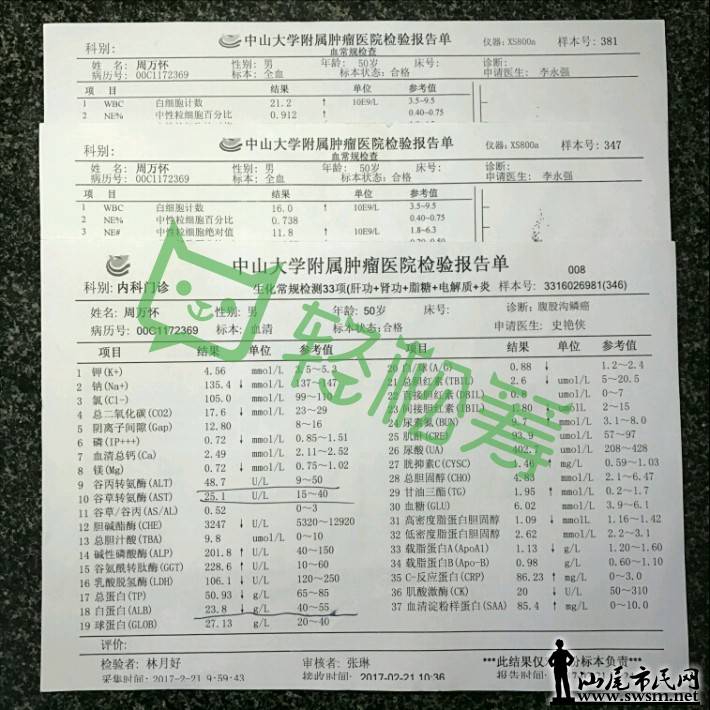 中山大学附属肿瘤医院检验报告单
血常规检查
仪器: XS800a 样本号: 381
科别:
姓 名: 周万怀 性别: 男 年龄: 50岁 床号: 诊断:
病历号: 00C1172369 标本: 全血 标本状态: 合格 申请医生: 李永强
项 目 结果 单位 参考值
1 WBC 白细胞计数 21.2 ↑ 10E9/L 3.5-9.5
2 NE% 中性粒细胞百分比 0.912 ↑ 0.40-0.75
中山大学附属肿瘤医院检验报告单
血常规检查
仪器: XS800a 样本号: 347
科别:
姓 名: 周万怀 性别: 男 年龄: 50岁 床号: 诊断:
病历号: 00C1172369 标本: 全血 标本状态: 合格 申请医生: 李永强
项 目 结果 单位 参考值
1 WBC 白细胞计数 16.0 ↑ 10E9/L 3.5-9.5
2 NE% 中性粒细胞百分比 0.738 0.40-0.75
3 NE# 中性粒细胞绝对值 11.8 ↑ 10E9/L 1.8-6.3
中山大学附属肿瘤医院检验报告单
008
科别: 内科门诊 生化常规检测33项(肝功+肾功+脂糖+电解质+炎 样本号: 3316026981(346)
姓名: 周万怀 性别: 男 年龄: 50岁 床号: 诊断: 腹股沟鳞癌
病历号: 00C1172369 标本: 血清 标本状态: 合格 申请医生: 史艳侠
项目 结果 单位 参考值
1 钾(K+) 4.56 mmol/L 3.5~5.3
2 钠(Na+) 135.4 ↓ mmol/L 137~147
3 氯(Cl-) 105.0 mmol/L 99~110
4 总二氧化碳(CO2) 17.6 ↓ mmol/L 23~29
5 阴离子间隙(Gap) 12.80 8~16
6 磷(IP+++) 0.72 ↓ mmol/L 0.85~1.51
7 血清总钙(Ca) 2.49 mmol/L 2.11~2.52
8 镁(Mg) 0.72 ↓ mmol/L 0.75~1.02
9 谷丙转氨酶(ALT) 48.7 U/L 9~50
10 谷草转氨酶(AST) 25.1 U/L 15~40
11 谷草/谷丙(AS/AL) 0.52 0~3
12 胆碱酯酶(CHE) 3247 ↓ U/L 5320~12920
13 总胆汁酸(TBA) 9.8 umol/L 0~10
14 碱性磷酸酶(ALP) 201.8 ↑ U/L 40~150
15 谷氨酰转肽酶(GGT) 228.6 ↑ U/L 10~60
16 乳酸脱氢酶(LDH) 106.1 ↓ U/L 120~250
17 总蛋白(TP) 50.93 ↓ g/L 65~85
18 白蛋白(ALB) 23.8 ↓ g/L 40~55
19 球蛋白(GLOB) 27.13 g/L 20~40
项目 结果 单位 参考值
20 白/球(A/G) 0.88 ↓ 1.2~2.4
21 总胆红素(TBIL) 2.6 ↓ umol/L 5~20.5
22 直接胆红素(DBIL) 0.8 umol/L 0~7
23 间接胆红素(IBIL) 1.80 ↓ umolL 2~15
24 尿素氮(BUN) 9.7 ↑ mmol/L 3.1~8.0
25 肌酐(CRE) 93.9 umol/L 57~97
26 尿酸(UA) umol/L 208~428
27 胱抑素C(CYSC) 1.46 ↑ mg/L 0.59~1.03
28 总胆固醇(CHO) 4.83 mmol/L 2.1~6.47
29 甘油三酯(TG) 1.95 ↑ mmol/L 0.2~1.7
30 血糖(GLU) 6.02 mmol/L 3.9~6.1
31 高密度脂蛋白胆固醇 1.09 ↓ mmolL 1.16~1.42
32 低密度脂蛋白胆固醇 2.62 mmol/L 2.2~3.1
33 载脂蛋白A(ApoA1) 1.13 ↓ g/L 1.20~1.60
34 载脂蛋白B(Apo-B) 0.98 g/L 0.60~1.10
35 C-反应蛋白(CRP) 86.23 ↑ mg/L 0~3.0
36 肌酸激酶(CK) 20 ↓ U/L 50~310
37 血清淀粉样蛋白(SAA) 85.4 ↑ mg/L 0~10.0
评价:
检验者: 林月好 审核者: 张琳 ***此结果仅 标本负责***
采集时间: 2017-2-21 9:59:43 接收时间: 2017-02-21 10:36 报告时间:
轻松筹
汕尾市民网
www.swsm.net